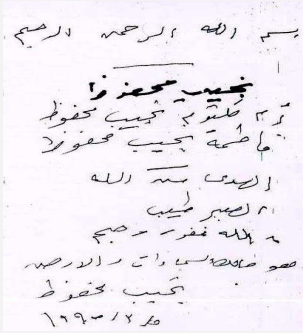 بسم الله الرحمن الرحيم
نجيب محفوظ
أم كلثوم نجيب محفوظ
فاطمة نجيب محفوظ
الهدى من الله
الصبر طيب
الله غفور رحيم
هو خالق السماوات والأرض
نجيب محفوظ